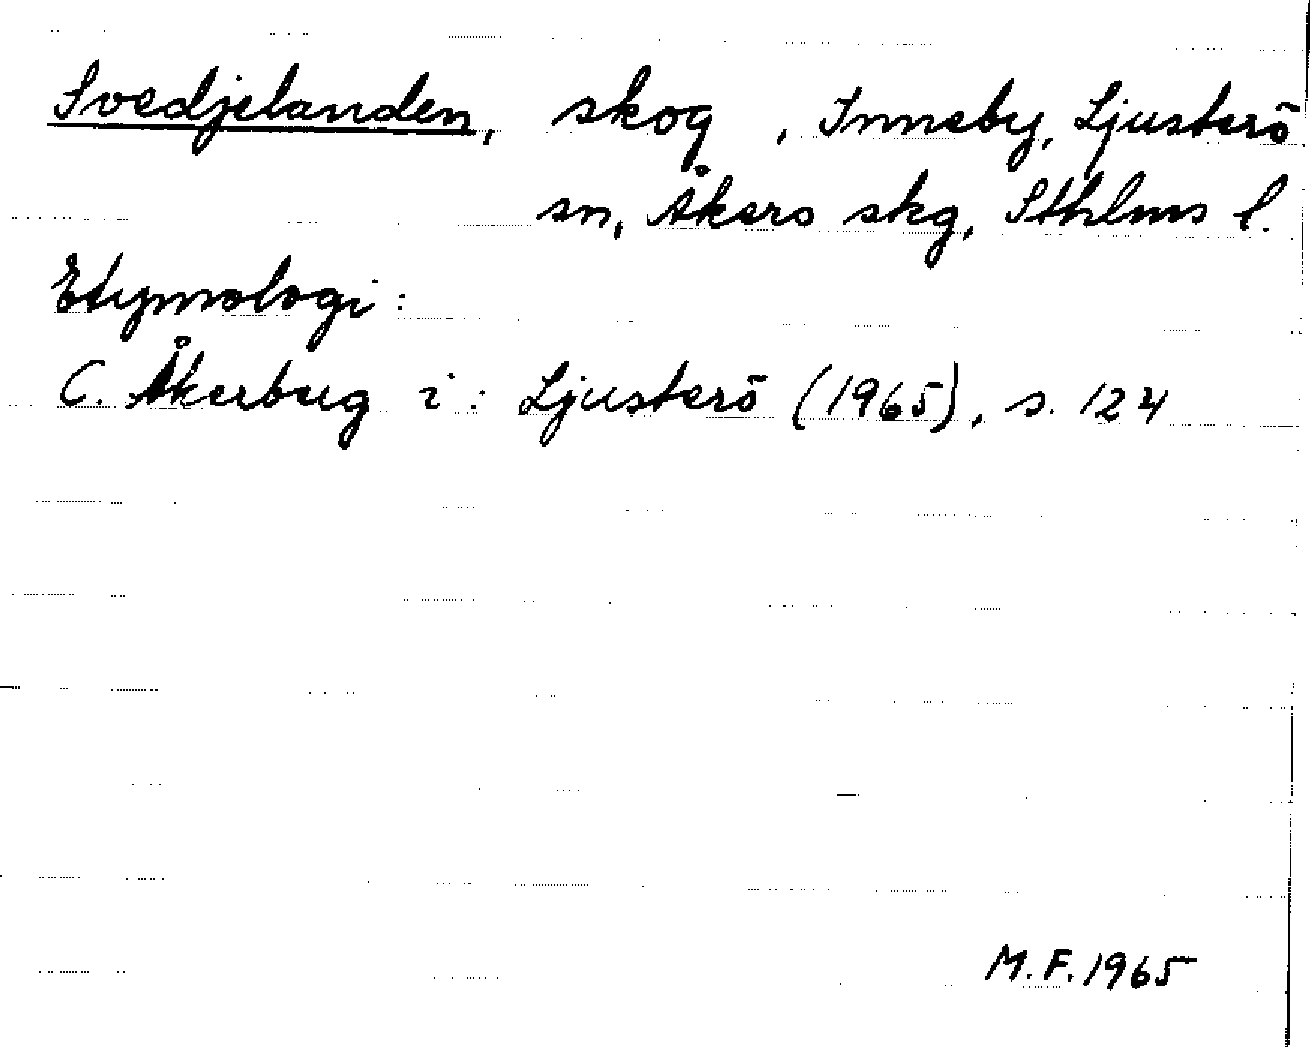 Svedjelanden, skog, Inneby, Ljusterö
sn, Åkers skg, Sthlms l.
Etymologi:
C. Åkerberg i: Ljusterö (1965), s. 124
M.F. 1965